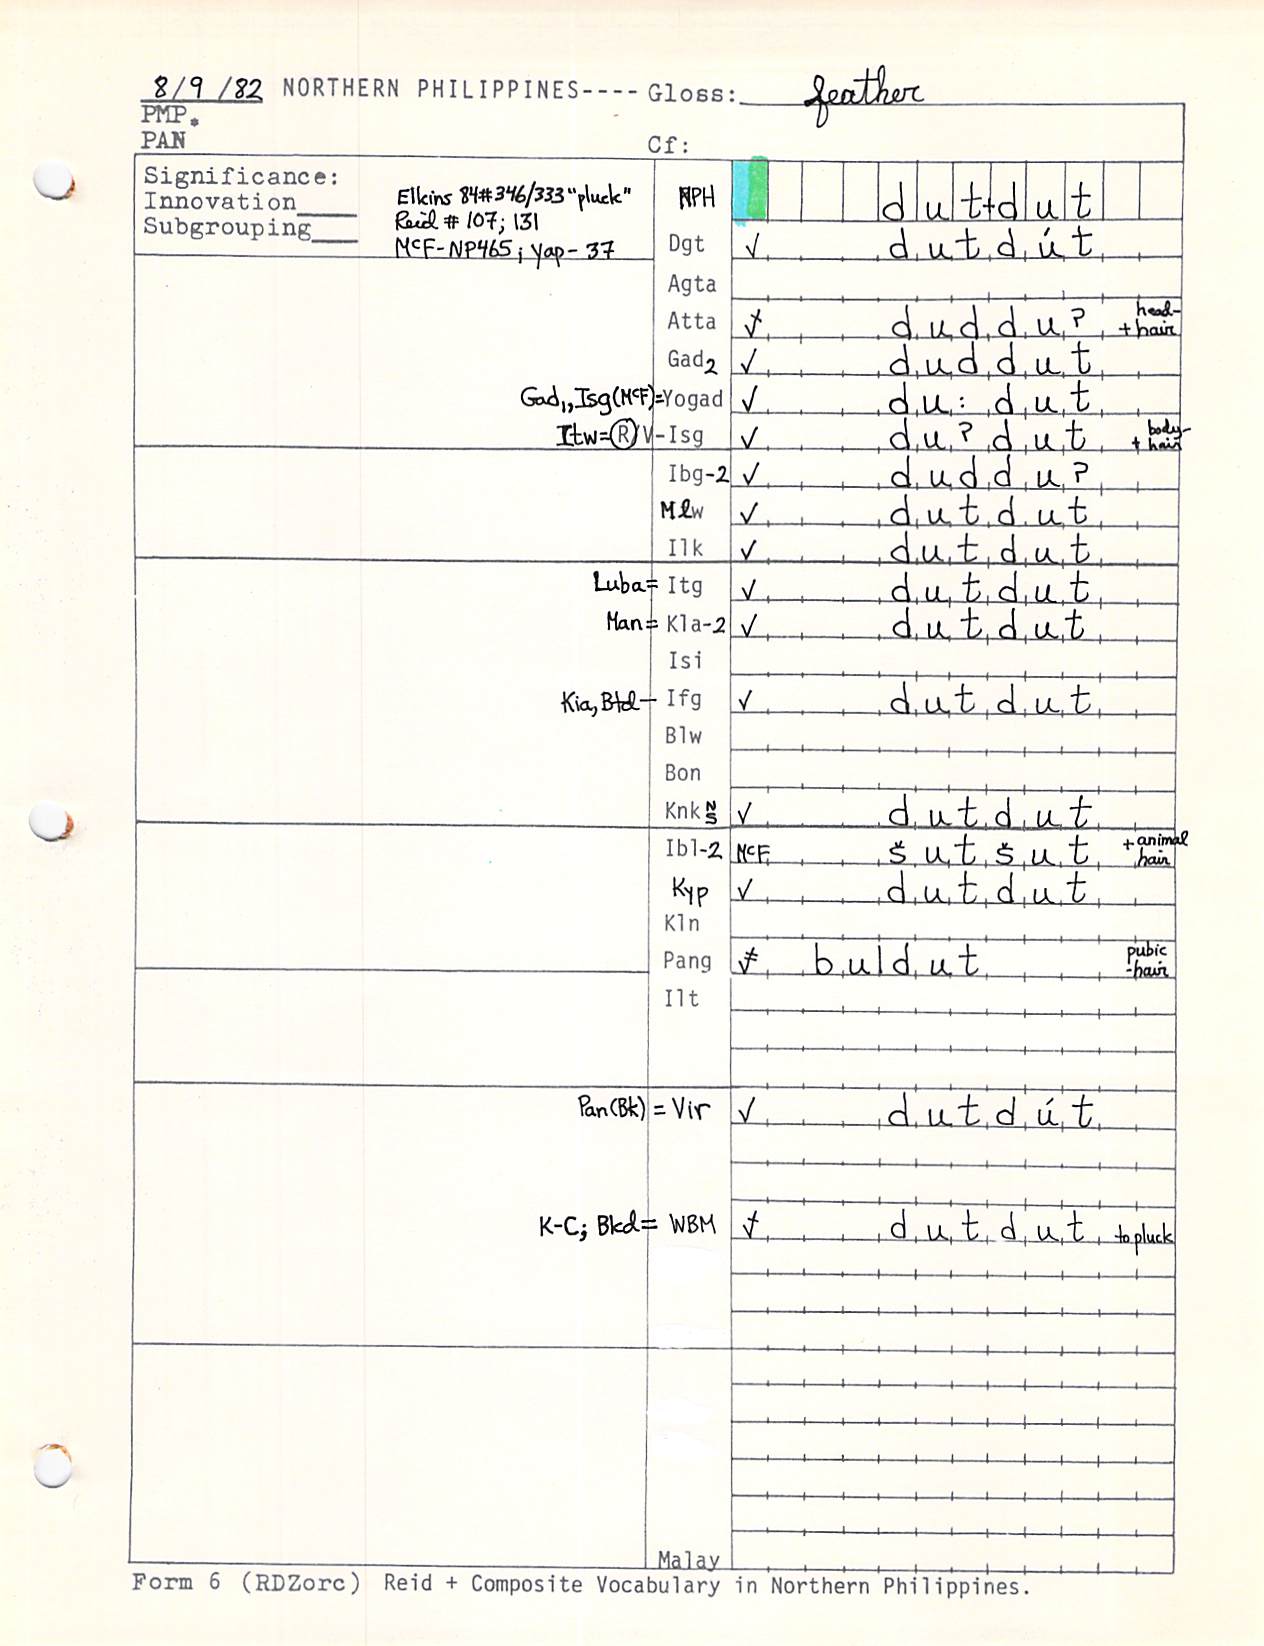 8/9/82 NORTHERN PHILIPPINES---- Gloss: feather
PMP.
PAN Cf:
Significance:
Innovation____
Subgrouping____
Elkins 84#346/333 "pluck"
Reid # 107; 131
McF-NP465; Yap-37
NPH dut+dut
Dgt ✓ dutdút
Agta
Atta ≠ duddu? head-
+hair
Gad2 ✓ duddut
Gad1, Isg(McF)=Yogad ✓ du:dut
Itw=Ⓡ/V-Isg ✓ du?dut body-
+hair
Ibg-2 ✓ duddu?
Mlw ✓ dutdut
Ilk ✓ dutdut
Luba= Itg ✓ dutdut
Man= Kla-2 ✓ dutdut
Isi
Kia, Btd- Ifg ✓ dutdut
Blw
Bon
Knk N S ✓ dutdut
Ibl-2 McF šutšut +animal
hair
Kyp ✓ dutdut
Kln
Pang ≠ buldut pubic
-hair
Ilt
Pan(Bk) = Vir ✓ dutdút
K-C; Bkd= WBM ≠ dutdut to pluck
Malay
Form 6 (RDZorc) Reid + Composite Vocabulary in Northern Philippines.